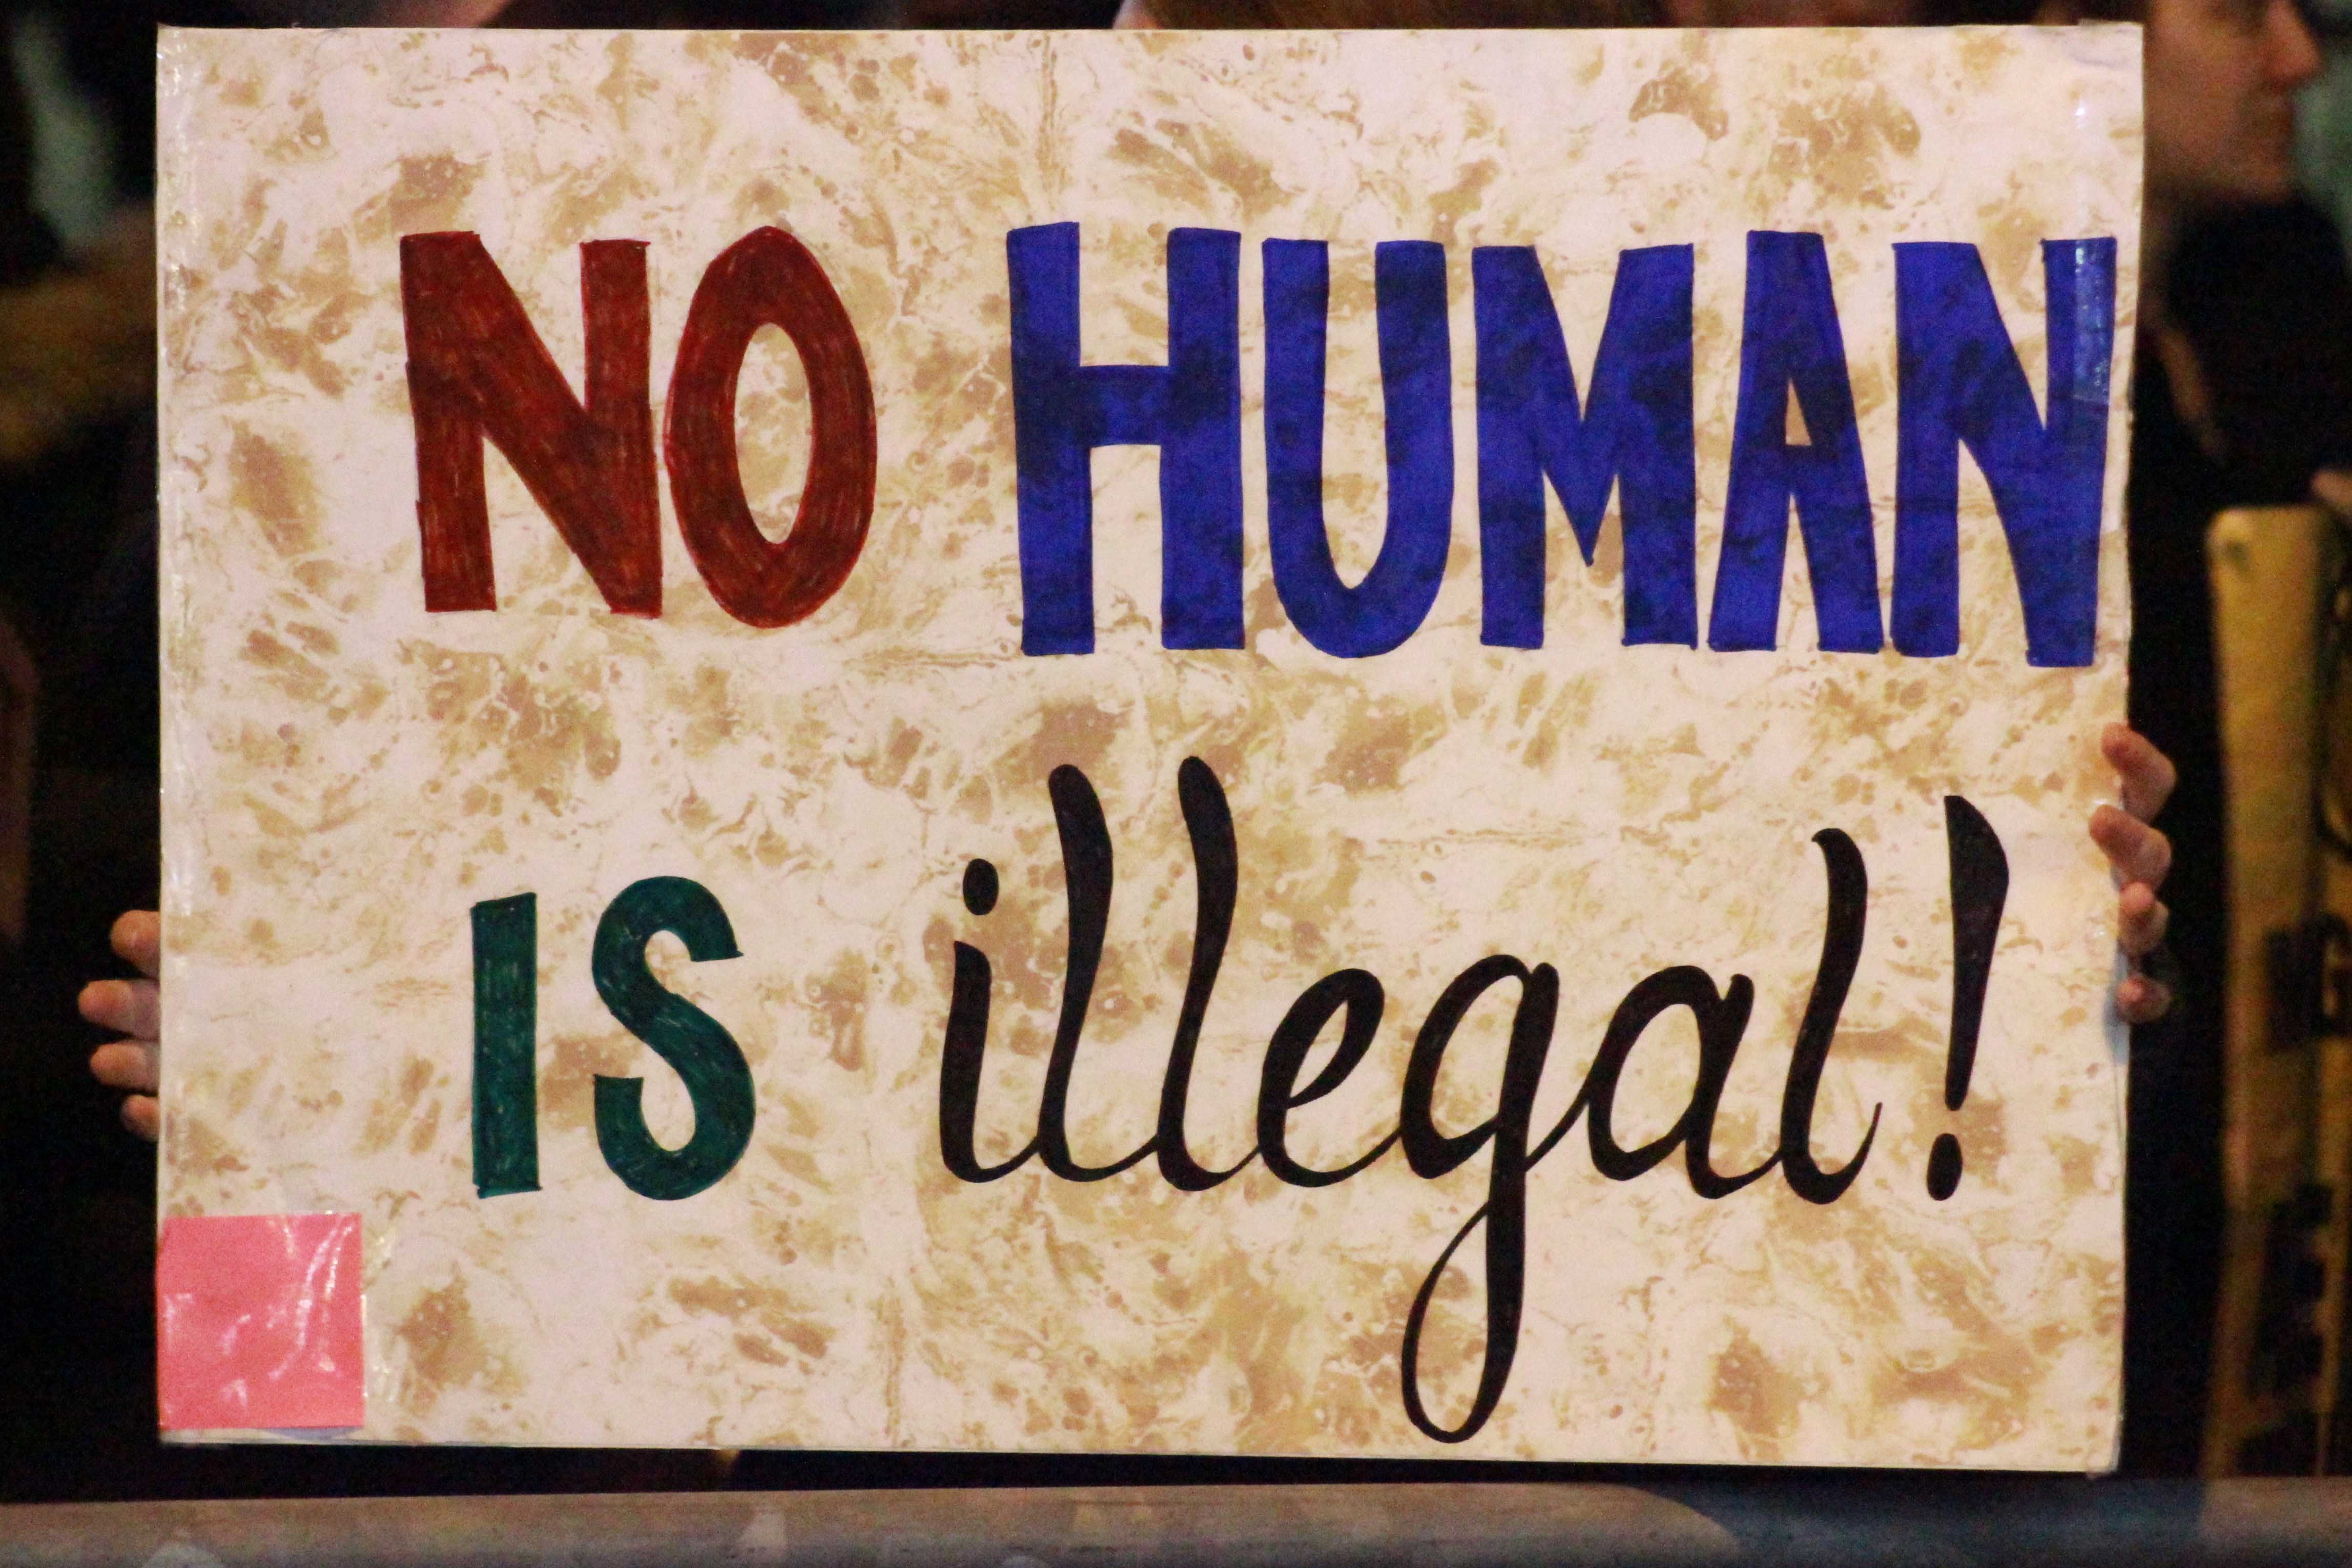 NO HUMAN
IS illegal!